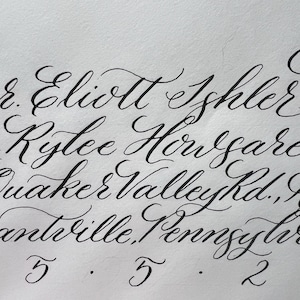 r. Eliott Ishler
Rylee Howsare
Quaker Valley Rd.,
antville, Pennsylv
5 . 5 . 2